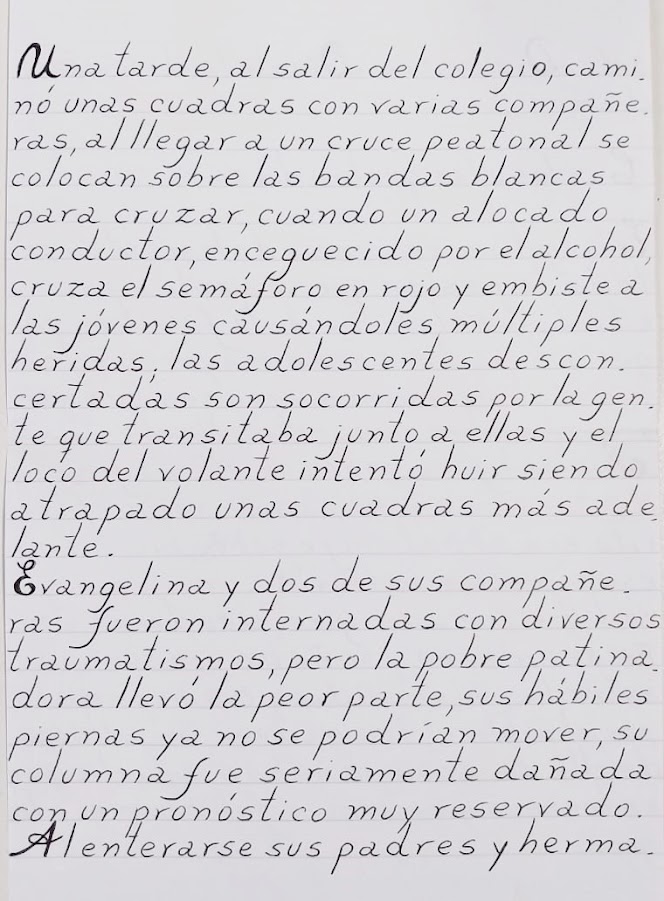 Una tarde, al salir del colegio, cami-
nó unas cuadras con varias compañe-
ras, al llegar a un cruce peatonal se
colocan sobre las bandas blancas
para cruzar, cuando un alocado
conductor, enceguecido por el alcohol,
cruza el semáforo en rojo y embiste a
las jóvenes causándoles múltiples
heridas, las adolescentes descon-
certadas son socorridas por la gen-
te que transitaba junto a ellas y el
loco del volante intentó huir siendo
atrapado unas cuadras más ade-
lante.
Evangelina y dos de sus compañe-
ras fueron internadas con diversos
traumatismos, pero la pobre patina-
dora llevó la peor parte, sus hábiles
piernas ya no se podrían mover, su
columna fue seriamente dañada
con un pronóstico muy reservado.
Al enterarse sus padres y herma-